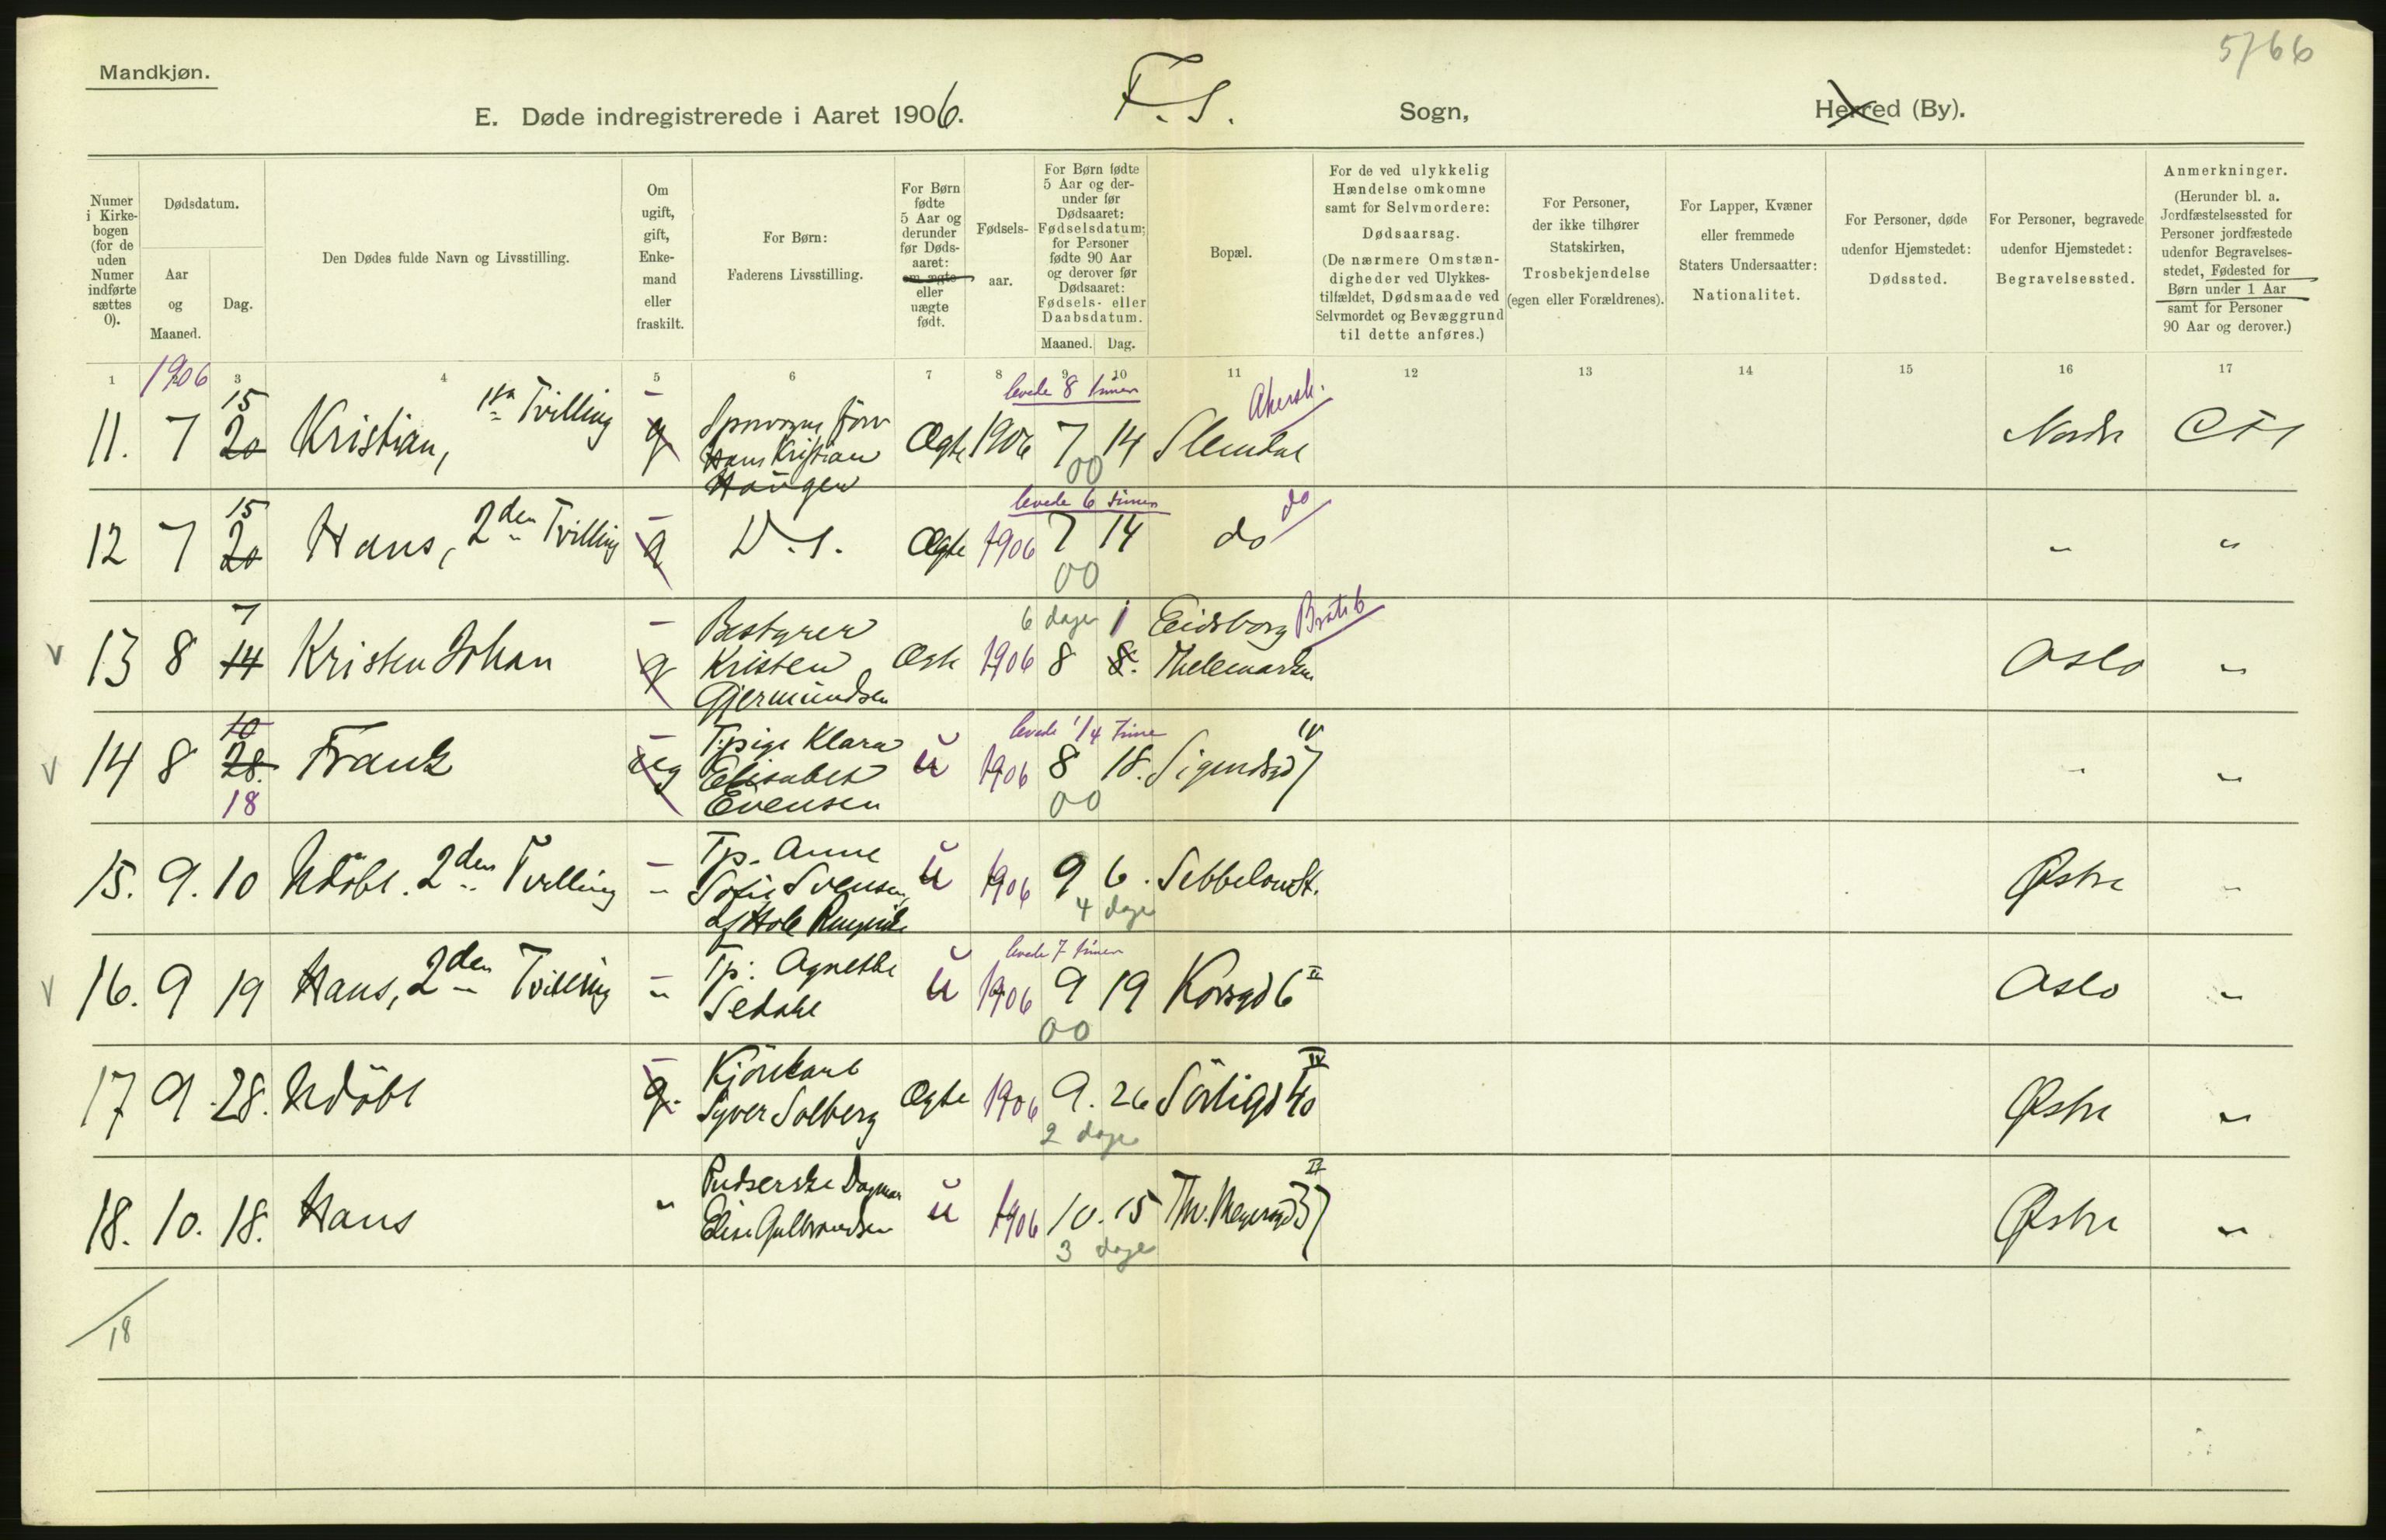 5766
Mandkjøn.
E. Døde indregistrerede i Aaret 1906. F.S. Sogn, Herred (By).
Numer i Kirke-bogen (for de uden Numer indførte sættes 0).
Dødsdatum.
Aar og Maaned.
Dag.
Den Dødes fulde Navn og Livsstilling.
Om ugift, gift, Enke-mand eller fraskilt.
For Børn:
Faderens Livsstilling.
For Børn fødte 5 Aar og derunder før Døds-aaret: om ægte eller uægte født.
Fødsels-aar.
For Børn fødte 5 Aar og der-under før Dødsaaret: Fødselsdatum; for Personer fødte 90 Aar og derover før Dødsaaret: Fødsels- eller Daabsdatum.
Maaned. Dag.
Bopæl.
For de ved ulykkelig Hændelse omkomne samt for Selvmordere: Dødsaarsag.
(De nærmere Omstæn-digheder ved Ulykkes-tilfældet, Dødsmaade ved Selvmordet og Bevæggrund til dette anføres.)
For Personer, der ikke tilhører Statskirken, Trosbekjendelse (egen eller Forældrenes).
For Lapper, Kvæner eller fremmede Staters Undersaatter: Nationalitet.
For Personer, døde udenfor Hjemstedet: Dødssted.
For Personer, begravede udenfor Hjemstedet: Begravelsessted.
Anmerkninger.
(Herunder bl. a. Jordfæstelsessted for Personer jordfæstede udenfor Begravelses-stedet, Fødested for Børn under 1 Aar samt for Personer 90 Aar og derover.)
1 3 4 5 6 7 8 9 10 11 12 13 14 15 16 17
1906
levede 8 timer
11. 7 15 20 Kristian, 1ste Tvilling g Hans Kristian Haugen Ægte 1906 7 14 Slemdal Nordre
00
levede 6 timer
12 7 15 20 Hans, 2den Tvilling g D.s. Ægte 1906 7 14 do do " "
00
6 dage 1
v 13 8 7 14 Kristen Johan g Bestyrer Kristen Gjermundsen Ægte 1906 8 8. Eidsborg Thelemarken Oslo "
levede 1/4 time
v 14 8 10 28. 18 Frank ug T.pige Klara Elisabet Evensen u 1906 8 18. 7 IV " "
00
15. 9. 10 Udöbt. 2den Tvilling " Tp. Anne Sofie Svensen, af Hole u 1906 9 6. Østre "
4 dage
levede 7 timer
v 16. 9 19 Hans, 2den Tvilling " Tp: Agnethe u 1906 9 19 Korsgd 6 II Oslo "
00
17 9. 28. Udöbt g. Kjörekarl Syver Solberg Ægte 1906 9. 26 40 IV Østre "
2 dage
18. 10. 18. Hans " Pudserske Dagmar Elise Gulbrandsen u 1906 10. 15 Th. Meyersgd 37 II Østre "
3 dage
18